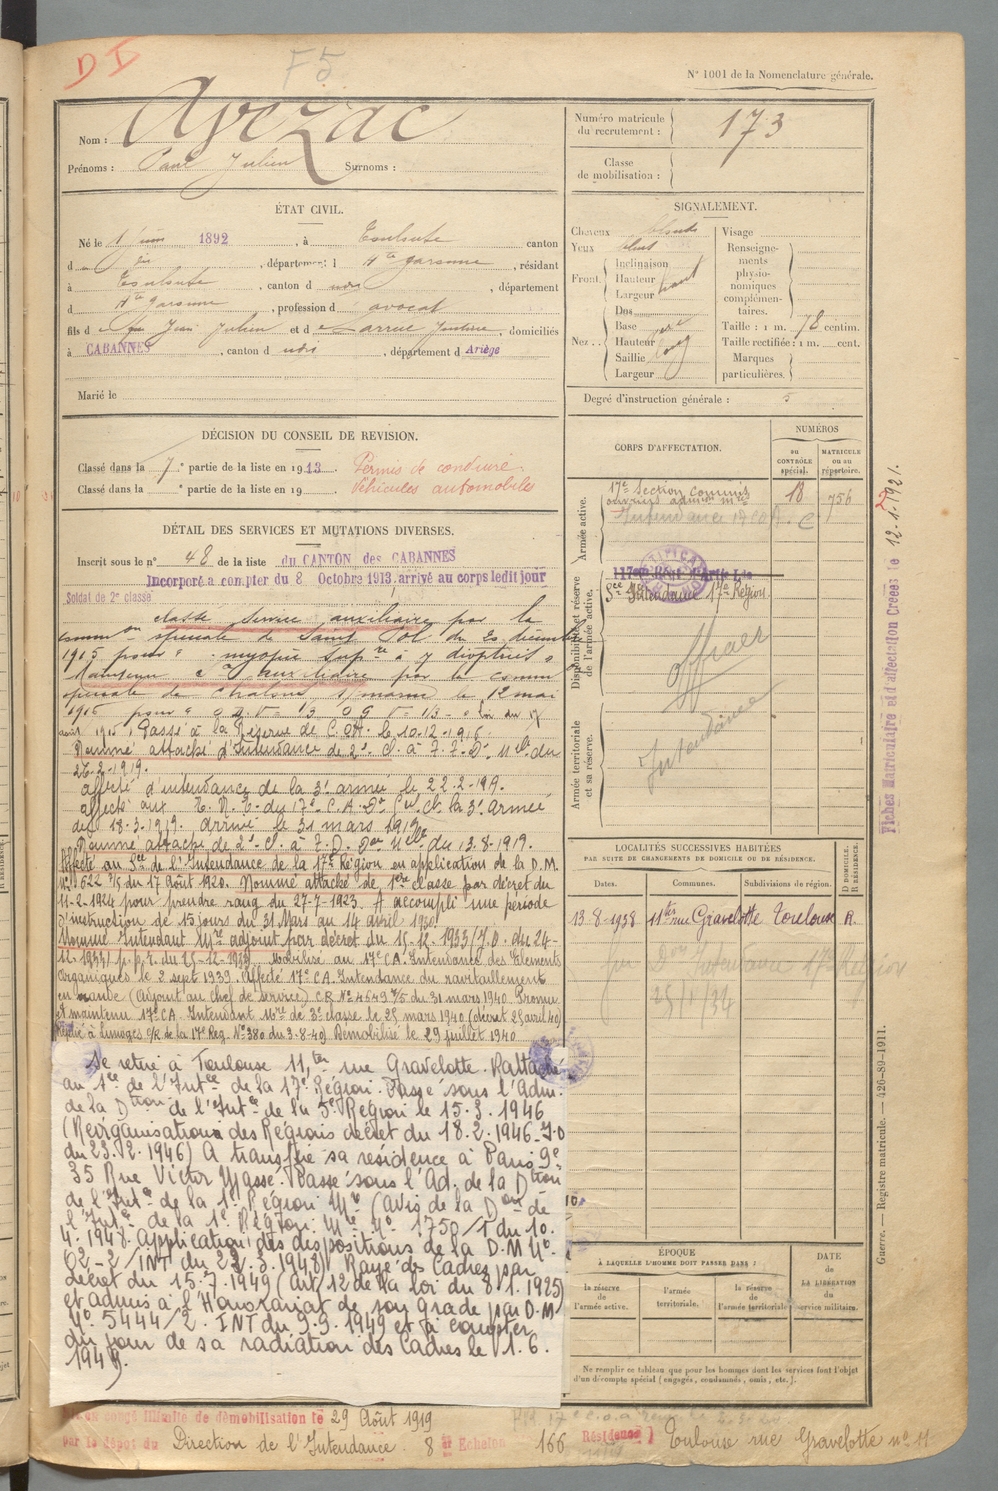 D I
F5
N° 1001 de la Nomenclature générale.
Nom : Ayezac
Prénoms : Paul Julien Surnoms :
Numéro matricule du recrutement : 173
Classe de mobilisation :
ÉTAT CIVIL.
Né le 1 juin 1892, à Toulouse canton
d dis, département d Hte Garonne, résidant
à Toulouse, canton d udis, département
d Hte Garonne, profession d avocat
fils d e feu Jean Julien et d e Larrue, domiciliés
à CABANNES, canton d udis, département d Ariège
Marié le
SIGNALEMENT.
Cheveux blonds
Yeux bleus
Front. Inclinaison
Hauteur haut
Largeur
Nez .. Dos
Base
Hauteur
Saillie long
Largeur
Visage
Renseignements physionomiques complémentaires.
Taille : 1 m. 78 centim.
Taille rectifiée : 1 m. cent.
Marques particulières.
Degré d'instruction générale : 5
DÉCISION DU CONSEIL DE REVISION.
Classé dans la 7e partie de la liste en 1913. Permis de conduire
Classé dans la e partie de la liste en 19 . Véhicules automobiles
DÉTAIL DES SERVICES ET MUTATIONS DIVERSES.
Inscrit sous le n° 48 de la liste du CANTON des CABANNES
Incorporé a compter du 8 Octobre 1913. arrivé au corps ledit jour
Soldat de 2e classe
classé Service auxiliaire par la
comm on spéciale de Saint Pol du 20 décembre
1915 pour " myopie Supre à 7 dioptries "
Maintenu Sce auxiliaire par la comm
spéciale de Chalons s/marne le 12 mai
1916 pour " O D V = 1/3 O G V = 1/3 - " Loi du 17
août 1915. Passé à la Réserve de l'A. A. le 10-12-1916.
Nommé attaché d'Intendance de 2e Cl. à T. T. D. Mlle du
26-2-1919.
affecté d'intendance de la 3e armée le 22.2.19.
affecté aux E. N. E. du 17e C.A. Don la 3e armée
del 18-3-1919. arrivé le 31 mars 1919
Nommé attaché de 2e Cl. à T. D. Don Mlle du 13.8.1919.
Affecté au Sce de l'Intendance de la 17e Région en application de la D.M.
N° 1522 7/5 du 17 août 1920. Nommé attaché de 1ère classe par décret du
11-2-1924 pour prendre rang du 27-7-1923. A accompli une période
d'instruction de 15 jours du 31 Mars au 14 avril 1930
Nommé Intendant Mre adjoint par décret du 15-12-1933 (J.O. du 24-
12-1933) p.p.r. du 25-12-1933. Mobilisé au 17e CA Intendance des Eléments
Organiques le 2 sept 1939. Affecté 17e CA. Intendance du ravitaillement
en viande (Adjoint au chef de service) C.R N° 4649 7/5 du 31 mars 1940. Promu
et maintenu 17e CA. Intendant Mre de 3e classe le 25 mars 1940 (décret 25 avril 40)
Replié à Limoges O/R de la 17e Reg. N° 380 du 3-8-40) Démobilisé le 29 juillet 1940
Se retire à Toulouse 11, ter rue Gravelotte. Rattaché
au 1ce de l'Intce de la 17e Région. Passé sous l'Adm.
de la Dtion de l'Intce de la 5e Région le 15.3.1946
(Réorganisation des Régions décret du 18.2.1946 J.O
du 23.02.1946) A transféré sa résidence à Paris 9e
35 Rue Victor Massé. Passé sous l'Ad. de la Dtion
de l'Intce de la 1e Région Mre (avis de la Don de
l'Intce de la 1e Région Mre N° 1750/1 du 10.
4.1948. Application des dispositions de la D.M N°
02-2/INT du 22.3.1948) Rayé des Cadres par
décret du 15.7.1949 (Art 12 de la loi du 8.1.1925)
et admis à l'Honorariat de son grade par D.M
N° 5444/2. INT du 9.9.1949 et à compter
du jour de sa radiation des Cadres le 1.6.
1949.
CORPS D'AFFECTATION.
NUMÉROS
DU CONTRÔLE spécial.
MATRICULE ou au répertoire.
Armée active.
17e Section Commis
ouvriers admin mre 18 756
Intendance 17 CA
Disponibilité et réserve de l'armée active.
Sce Intendance 17e Région.
officier
Intendance
Armée territoriale et sa réserve.
LOCALITÉS SUCCESSIVES HABITÉES
PAR SUITE DE CHANGEMENTS DE DOMICILE OU DE RÉSIDENCE.
Dates. Communes. Subdivisions de région. D DOMICILE. R RÉSIDENCE.
13-8-1938 11ter rue Gravelotte Toulouse R.
Don Intendance 17e Région
25/1/34
ÉPOQUE
À LAQUELLE L'HOMME DOIT PASSER DANS :
la réserve de l'armée active.
l'armée territoriale.
la réserve de l'armée territoriale
DATE de LA LIBÉRATION du service militaire.
Ne remplir ce tableau que pour les hommes dont les services font l'objet
d'un décompte spécial (engagés, condamnés, omis, etc.).
Fiches Matriculaire et d'affectation Créées le 12.1.1921.
Guerre. — Registre matricule. — 426-89-1911.
congé illimité de démobilisation le 29 Août 1919
par le dépôt du Direction de l'Intendance 8 er Echelon 166 Résidence } Toulouse rue Gravelotte n° 11